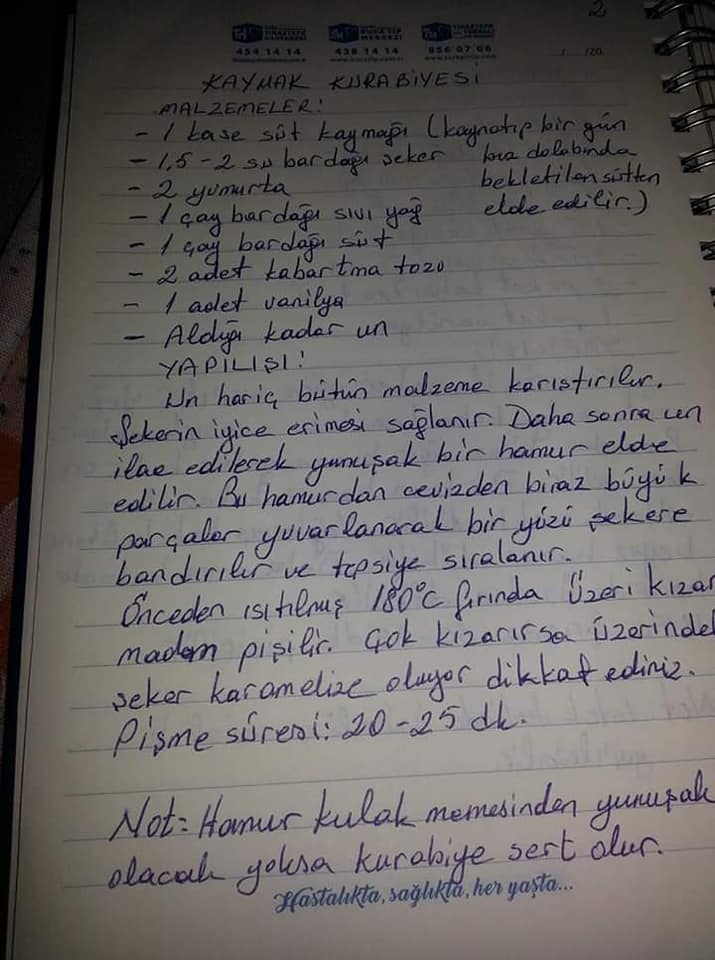 2
454 14 14
438 14 14
656 07 06
/ /20
KAYMAK KURABİYESİ
MALZEMELER!
- 1 kase süt kaymağı (kaynatıp bir gün
- 1,5-2 su bardağı şeker buz dolabında
- 2 yumurta bekletilen sütten
- 1 çay bardağı sıvı yağ elde edilir.)
- 1 çay bardağı süt
- 2 adet kabartma tozu
- 1 adet vanilya
- Aldığı kadar un
YAPILIŞI!
Un hariç bütün malzeme karıştırılır.
Şekerin iyice erimesi sağlanır. Daha sonra un
ilae edilerek yumuşak bir hamur elde
edilir. Bu hamurdan cevizden biraz büyük
parçalar yuvarlanarak bir yüzü şekere
bandırılır ve tepsiye sıralanır.
Önceden ısıtılmış 180°C fırında üzeri kızar
madan pişilir. Çok kızarırsa üzerindeki
şeker karamelize oluyor dikkat ediniz.
Pişme süresi: 20-25 dk.
Not= Hamur kulak memesinden yumuşak
olacak yoksa kurabiye sert olur.
Hastalıkta, sağlıkta, her yaşta...